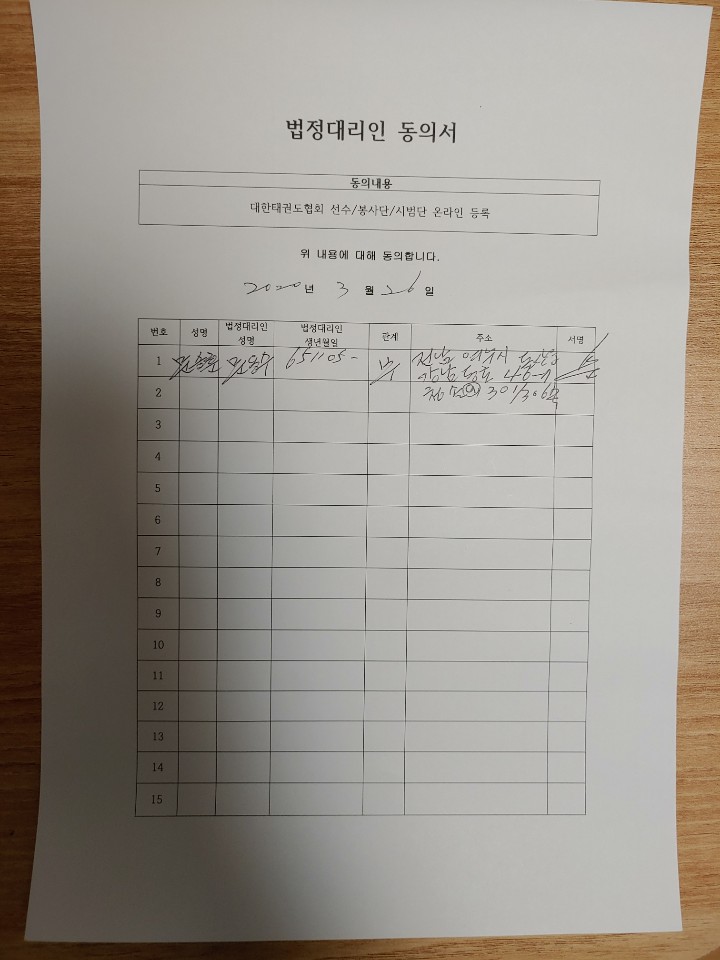 법정대리인 동의서
동의내용
대한태권도협회 선수/봉사단/시범단 온라인 등록
위 내용에 대해 동의합니다.
2020년 3 월 26 일
번호 성명 법정대리인 성명 법정대리인 생년월일 관계 주소 서명
1 651105- 부 전남 여수시
2 301
3
4
5
6
7
8
9
10
11
12
13
14
15